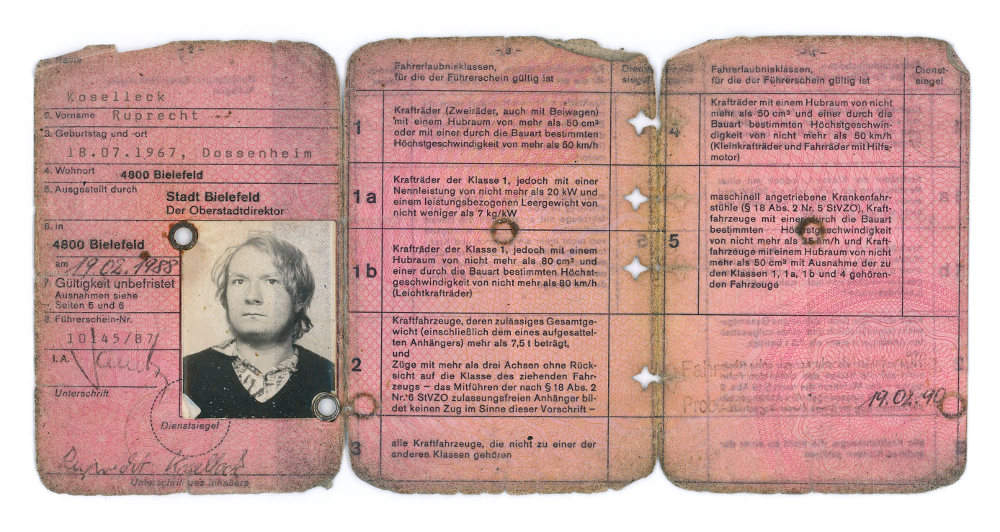 - 2 -
Name
Koselleck
2. Vorname Ruprecht --
3. Geburtstag und -ort
18.07.1967, Dossenheim
4. Wohnort 4800 Bielefeld
5. Ausgestellt durch
Stadt Bielefeld
Der Oberstadtdirektor
6. in
4800 Bielefeld
am 19.02.1988
7. Gültigkeit unbefristet
Ausnahmen siehe
Seiten 5 und 6
8. Führerschein-Nr.
10145/87
i.A.
Unterschrift
Dienstsiegel
Unterschrift des Inhabers
- 3 -
Fahrerlaubnisklassen,
für die der Führerschein gültig ist
1
Krafträder (Zweiräder, auch mit Beiwagen)
mit einem Hubraum von mehr als 50 cm³
oder mit einer durch die Bauart bestimmten
Höchstgeschwindigkeit von mehr als 50 km/h
1a
Krafträder der Klasse 1, jedoch mit einer
Nennleistung von nicht mehr als 20 kW und
einem leistungsbezogenen Leergewicht von
nicht weniger als 7 kg/kW
1b
Krafträder der Klasse 1, jedoch mit einem
Hubraum von nicht mehr als 80 cm³ und
einer durch die Bauart bestimmten Höchst-
geschwindigkeit von nicht mehr als 80 km/h
(Leichtkrafträder)
2
Kraftfahrzeuge, deren zulässiges Gesamtge-
wicht (einschließlich dem eines aufgesattel-
ten Anhängers) mehr als 7,5 t beträgt,
und
Züge mit mehr als drei Achsen ohne Rück-
sicht auf die Klasse des ziehenden Fahr-
zeugs – das Mitführen der nach § 18 Abs. 2
Nr. 6 StVZO zulassungsfreien Anhänger bil-
det keinen Zug im Sinne dieser Vorschrift –
3
alle Kraftfahrzeuge, die nicht zu einer der
anderen Klassen gehören
- 4 -
Fahrerlaubnisklassen,
für die der Führerschein gültig ist
Dienst-
siegel
4
Krafträder mit einem Hubraum von nicht
mehr als 50 cm³ und einer durch die
Bauart bestimmten Höchstgeschwin-
digkeit von nicht mehr als 50 km/h
(Kleinkrafträder und Fahrräder mit Hilfs-
motor)
5
maschinell angetriebene Krankenfahr-
stühle (§ 18 Abs. 2 Nr. 5 StVZO), Kraft-
fahrzeuge mit einer durch die Bauart
bestimmten Höchstgeschwindigkeit
von nicht mehr als 25 km/h und Kraft-
fahrzeuge mit einem Hubraum von nicht
mehr als 50 cm³ mit Ausnahme der zu
den Klassen 1, 1a, 1b und 4 gehören-
den Fahrzeuge
19.02.90